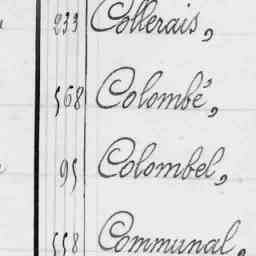 233 Collerais,
568 Colombé,
95 Colombel,
558 Communal,